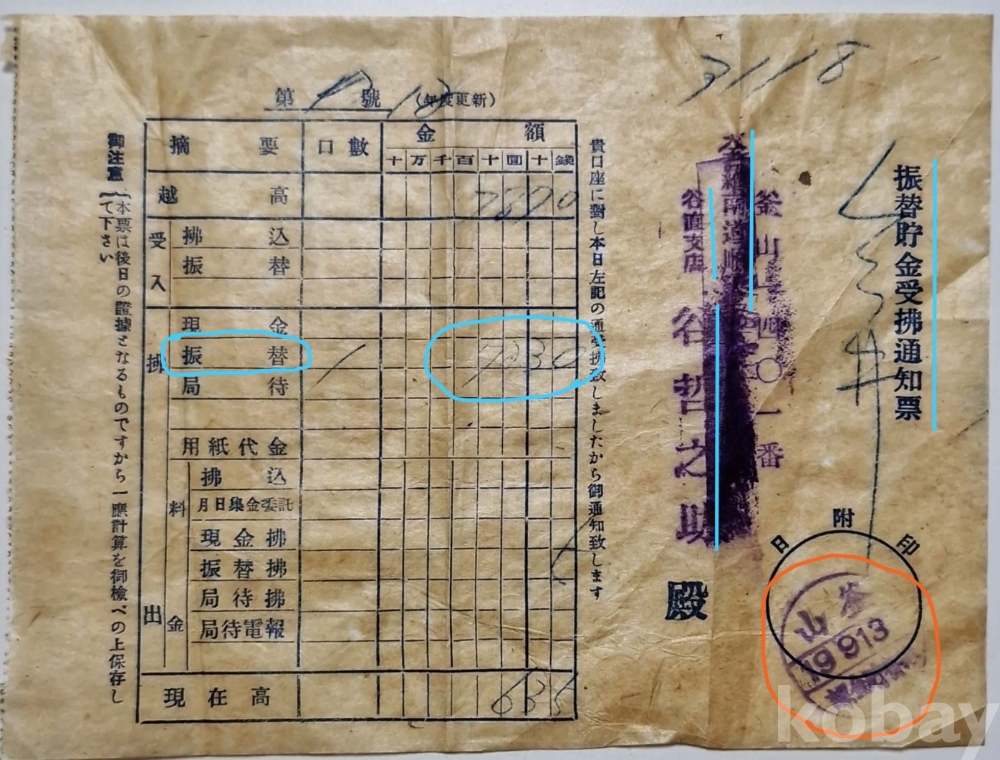 31118
振替貯金受拂通知票
釜山七四〇一番
全羅南道順
谷直支店
谷哲之助
殿
日附印
釜山
19 9 13
貴口座に對し本日左記の通受拂致しましたから御通知致します
第 號 (年度更新)
摘要 口數 金額
十万千百十圓十錢
越高 7870
受入
拂込
振替
拂出
現金
振替 1 7230
局待
用紙代金
料金
拂込
月日集金委託
現金拂
振替拂
局待拂
局待電報
現在高 635
御注意
本票は後日の證據となるものですから一應計算を御檢べの上保存し
て下さい
kobay